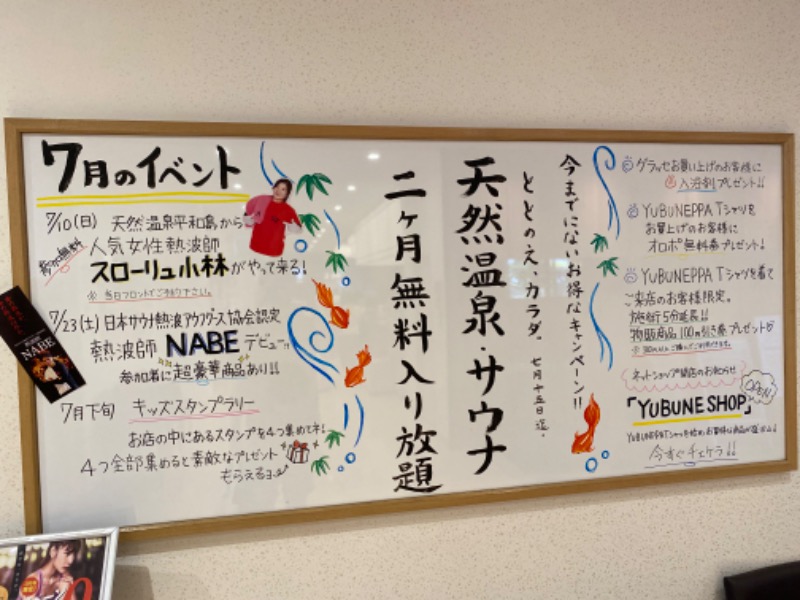 7月のイベント
7/10(日) 天然温泉平和島から
参加無料
人気女性熱波師
スローリュ小林がやって来る!
※当日フロントでご予約下さい。
7/23(土) 日本サウナ熱波アウフグース協会認定
熱波師 NABE デビュー!!
参加者に超豪華商品あり!!
7月下旬 キッズスタンプラリー
お店の中にあるスタンプを4つ集めてネ!
4つ全部集めると素敵なプレゼント
もらえるヨ
NABE
今までにないお得なキャンペーン!!
ととのえ、カラダ。 七月十五日迄。
天然温泉・サウナ
二ヶ月無料入り放題
グラッセお買い上げのお客様に
入浴剤プレゼント!!
YUBUNEPPA Tシャツを
お買上げのお客様に
オロポ無料券プレゼント!
YUBUNEPPA Tシャツを着て
ご来店のお客様限定。
施術5分延長!!
物販商品100円引き券プレゼント
ネットショップ開店のお知らせ
OPEN
「YUBUNE SHOP」
今すぐチェケラ!!